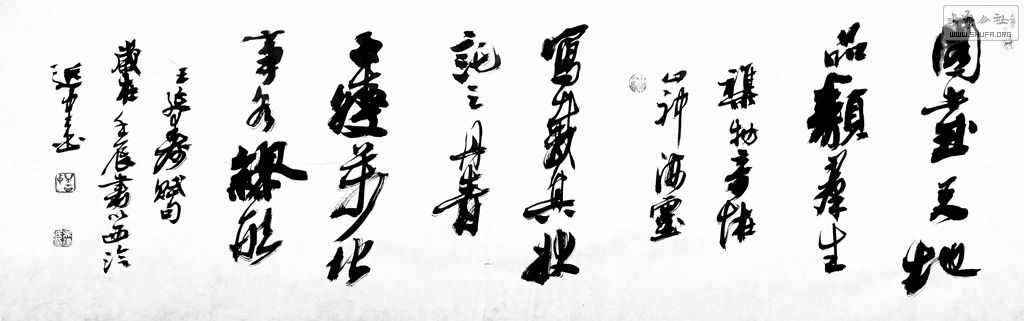 圖畫天地
品類羣生
雜物奇怪
山神海靈
寫載其狀
託之丹青
千變萬化
事各繆形
王延壽賦句
歲在壬辰書於西泠
WWW.SHUFA.ORG